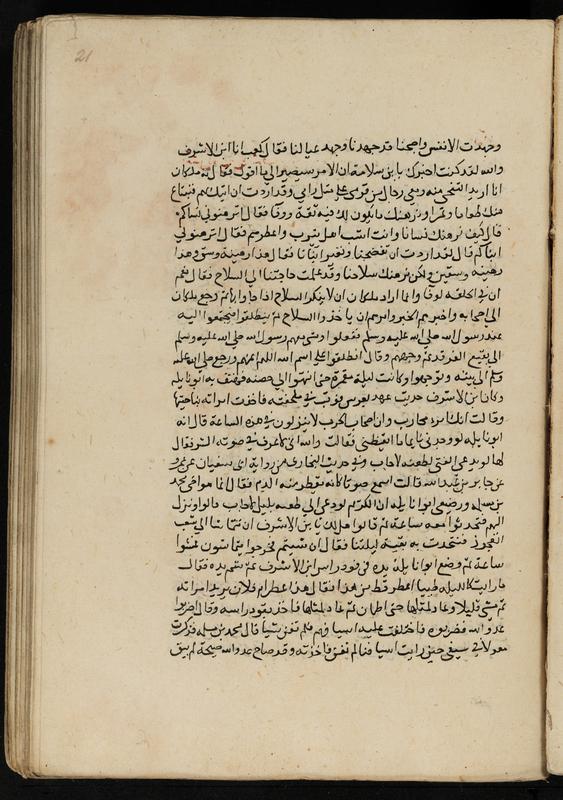 21
وجهدت الانفس واصبحنا قد جهدنا وجهد عيالنا فقال كعب انا ابن الاشرف
والله لقد كنت اخبرك يا بن سلامة ان الامر سيصير الى ما اقول فقال له سلكان
انا اريد التنحي منه ومعي رجال من قومي على مثل رايي وقد اردت ان اتيك بهم فنبتاع
منك طعاما وتمرا ونرهنك ما يكون لك فيه ثقة ووفا فقال اترهنوني نساكم
قال كيف نرهنك نسانا وانت اشب اهل يثرب واعطرهم فقال اترهنوني
ابناكم قال لقد اردت ان تفضحنا ونعير ابنانا فقال هذا رهينة وسق وهذا
رهينة وسقين ولكن نرهنك سلاحنا وقد علمت حاجتنا الى السلاح فقال نعم
ان في الحلقه لوفا وانما اراد سلكان ان لا ينكر السلاح اذا جاوا بهم ثم رجع سلكان
الى اصحابه واخبرهم الخبر وامرهم ان ياخذوا السلاح ثم ينطلقوا فيجتمعوا اليه
عند رسول الله صلى الله عليه وسلم ففعلوا ومشى معهم رسول الله صلى الله عليه وسلم
الى بقيع الغرقد ثم وجههم وقال انطلقوا على اسم الله اللهم اعنهم ورجع صلى الله عليه
وسلم الى بيته وتوجهوا وكانت ليلة مقمرة حتى انتهوا الى حصنه فهتف به ابو نايله
وكان ابن الاشرف حديث عهد بعرس فوثب في ملحفته فاخذت امراته بناحيتها
وقالت انك امرء محارب وان اصحاب الحرب لا ينزلون في هذه الساعة قال انه
ابو نايله لو وجدني نايما ما ايقظني فقالت والله اني لاعرف في صوته الشر فقال
لها لو يدعى الفتى لطعنه لاجاب وفي حديث البخاري من رواية ابي سفيان عن عمرو
عن جابر بن عبد الله قالت اسمع صوتا كانه يقطر منه الدم فقال انما هو اخي محمد
بن مسلمه ورضيعي ابو نايله ان الكريم لو دعي الى طعنه بليل لاجاب قالوا ونزل
اليهم فتحدثوا معه ساعة ثم قالوا هل لك يا بن الاشرف ان نتماشا الى شعب
العجوز فنتحدث به بقية ليلتنا فقال ان شيتم فخرجوا يتماشون فمشوا
ساعة ثم وضع ابو نايله يده في فود راس ابن الاشرف ثم شم يده فقال
ما رايت كالليله طيبا اعطر قط من هذا فقال هذا عطر ام فلان يريد امراته
ثم مشى قليلا وعاد لمثلها حتى اطمان ثم عاد لمثلها فاخذ بفود راسه وقال اضربوا
عدو الله فضربوه فاختلفت عليه اسيافهم فلم تغن شيا قال محمد بن مسلمه فذكرت
مغولا في سيفي حين رايت اسيافنا لم تغن فاخذته وقد صاح عدو الله صيحة لم يبق